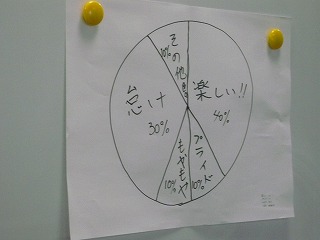 楽しい!!
40%
プライド
10%
もやもや
10%
怠け
30%
その他
10%